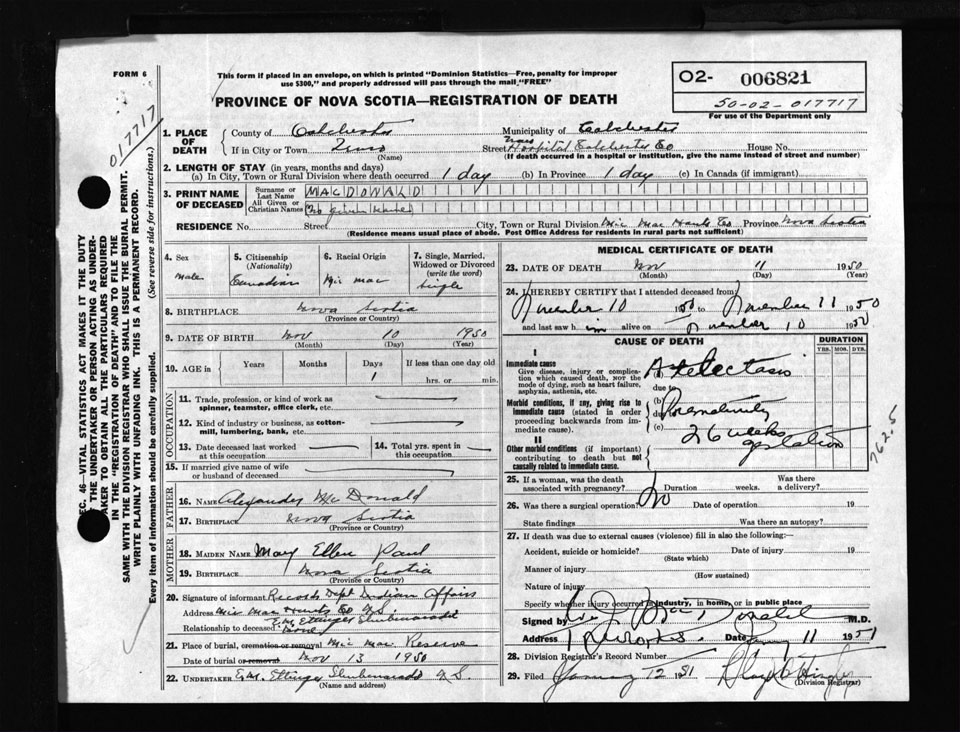 FORM 6
This form if placed in an envelope, on which is printed "Dominion Statistics—Free, penalty for improper
use $300," and properly addressed will pass through the mail "FREE"
O2- 006821
50-02-017717
For use of the Department only
PROVINCE OF NOVA SCOTIA—REGISTRATION OF DEATH
017717
SEC. 46—VITAL STATISTICS ACT MAKES IT THE DUTY
OF THE UNDERTAKER OR PERSON ACTING AS UNDER-
TAKER TO OBTAIN ALL THE PARTICULARS REQUIRED
IN THE "REGISTRATION OF DEATH" AND TO FILE THE
SAME WITH THE DIVISION REGISTRAR WHO SHALL ISSUE THE BURIAL PERMIT.
WRITE PLAINLY WITH UNFADING INK. THIS IS A PERMANENT RECORD.
Every item of information should be carefully supplied. (See reverse side for instructions.)
1. PLACE OF DEATH County of Colchester Municipality of Colchester
If in City or Town Truro (Name) Street Hospital Colchester Co House No.
(If death occurred in a hospital or institution, give the name instead of street and number)
2. LENGTH OF STAY (in years, months and days)
(a) In City, Town or Rural Division where death occurred 1 day (b) In Province 1 day (c) In Canada (if immigrant)
3. PRINT NAME OF DECEASED Surname or Last Name MACDONALD
All Given or Christian Names No given names
RESIDENCE No. Street City, Town or Rural Division Mic Mac Hants Co Province Nova Scotia
(Residence means usual place of abode. Post Office Address for residents in rural parts not sufficient)
4. Sex Male
5. Citizenship (Nationality) Canadian
6. Racial Origin Mic Mac
7. Single, Married, Widowed or Divorced (write the word) Single
8. BIRTHPLACE Nova Scotia
(Province or Country)
9. DATE OF BIRTH Nov 10 1950
(Month) (Day) (Year)
10. AGE in Years Months Days If less than one day old
1 hrs. or min.
OCCUPATION
11. Trade, profession, or kind of work as
spinner, teamster, office clerk, etc.
12. Kind of industry or business, as cotton-
mill, lumbering, bank, etc.
13. Date deceased last worked at this occupation
14. Total yrs. spent in this occupation
15. If married give name of wife
or husband of deceased
FATHER
16. NAME Alexander McDonald
17. BIRTHPLACE Nova Scotia
(Province or Country)
MOTHER
18. MAIDEN NAME Mary Ellen Paul
19. BIRTHPLACE Nova Scotia
(Province or Country)
20. Signature of informant Records Dept Indian Affairs
Address Mic Mac Hants Co N.S.
E.M. Ettinger Shubenacadie
Relationship to deceased None
21. Place of burial, cremation or removal Mic Mac Reserve
Date of burial or removal Nov 13 1950
22. UNDERTAKER E.M. Ettinger Shubenacadie N.S.
(Name and address)
MEDICAL CERTIFICATE OF DEATH
23. DATE OF DEATH Nov 11 1950
(Month) (Day) (Year)
24. I HEREBY CERTIFY that I attended deceased from
November 10 1950 to November 11 1950
and last saw h im alive on November 10 1950
CAUSE OF DEATH DURATION
YRS. MOS. DYS.
I
Immediate cause
Give disease, injury or complica-
tion which caused death, NOT the
mode of dying, such as heart failure,
asphyxia, asthenia, etc.
Atelectasis
due to
Morbid conditions, if any, giving rise to
immediate cause (stated in order
proceeding backwards from im-
mediate cause).
(b) Prematurity
due to
(c) 26 weeks
gestation
II
Other morbid conditions (if important)
contributing to death but not
causally related to immediate cause.
762.5
25. If a woman, was the death
associated with pregnancy? Duration weeks. Was there a delivery?
26. Was there a surgical operation? No Date of operation 19
State findings Was there an autopsy?
27. If death was due to external causes (violence) fill in also the following:—
Accident, suicide or homicide? Date of injury 19
(State which)
Manner of injury
(How sustained)
Nature of injury
Specify whether injury occurred in industry, in home, or in public place
Signed by Donald M.D.
Address Date Jany 11 1951
28. Division Registrar's Record Number
29. Filed January 12 1951
(Division Registrar)